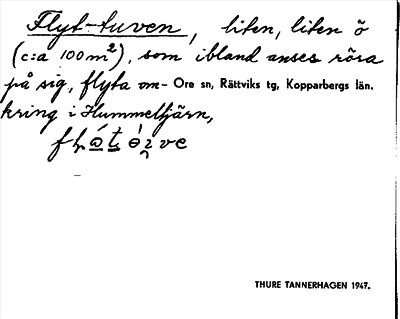 Flyt-tuven, liten, liten ö
(c:a 100 m²), som ibland anses röra
på sig, flyta om- Ore sn, Rättviks tg, Kopparbergs län.
kring i Hummeltjärn,
THURE TANNERHAGEN 1947.